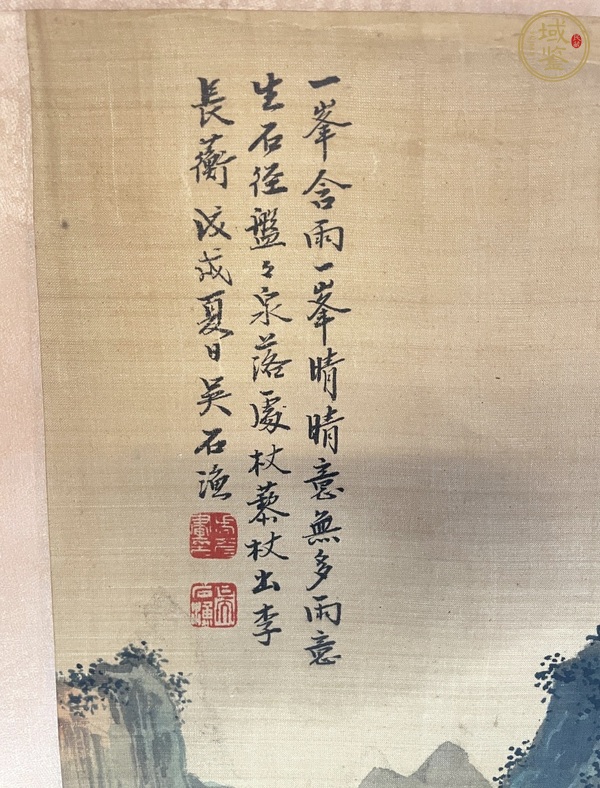 一峯含雨一峯晴晴意無多雨意
生石径盤々泉落處杖藜杖出李
長蘅 戊戌夏日吴石漁
吴石漁
域鉴